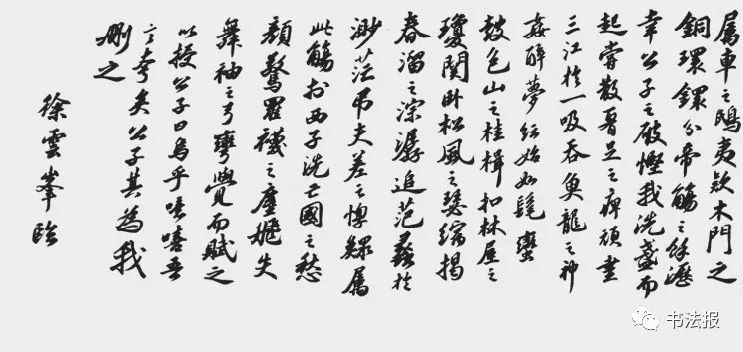 屬車之鴟夷款木門之
銅環鐶分帝觴之餘瀝
幸公子之破慳我洗盞而
起嘗散腰足之痹頑盡
三江於一吸吞魚龍之神
姦醉夢紜始如髦蠻
鼓包山之桂楫扣林屋之
瓊關卧松風之瑟縮揭
春溜之淙潺追范蠡於
渺茫吊夫差之惸鰥屬
此觴於西子洗亡國之愁
顏驚羅襪之塵飛失
舞袖之弓彎覺而賦之
以授公子曰烏乎噫嘻吾
言夸矣公子其為我
刪之
徐雲峯臨
书法报